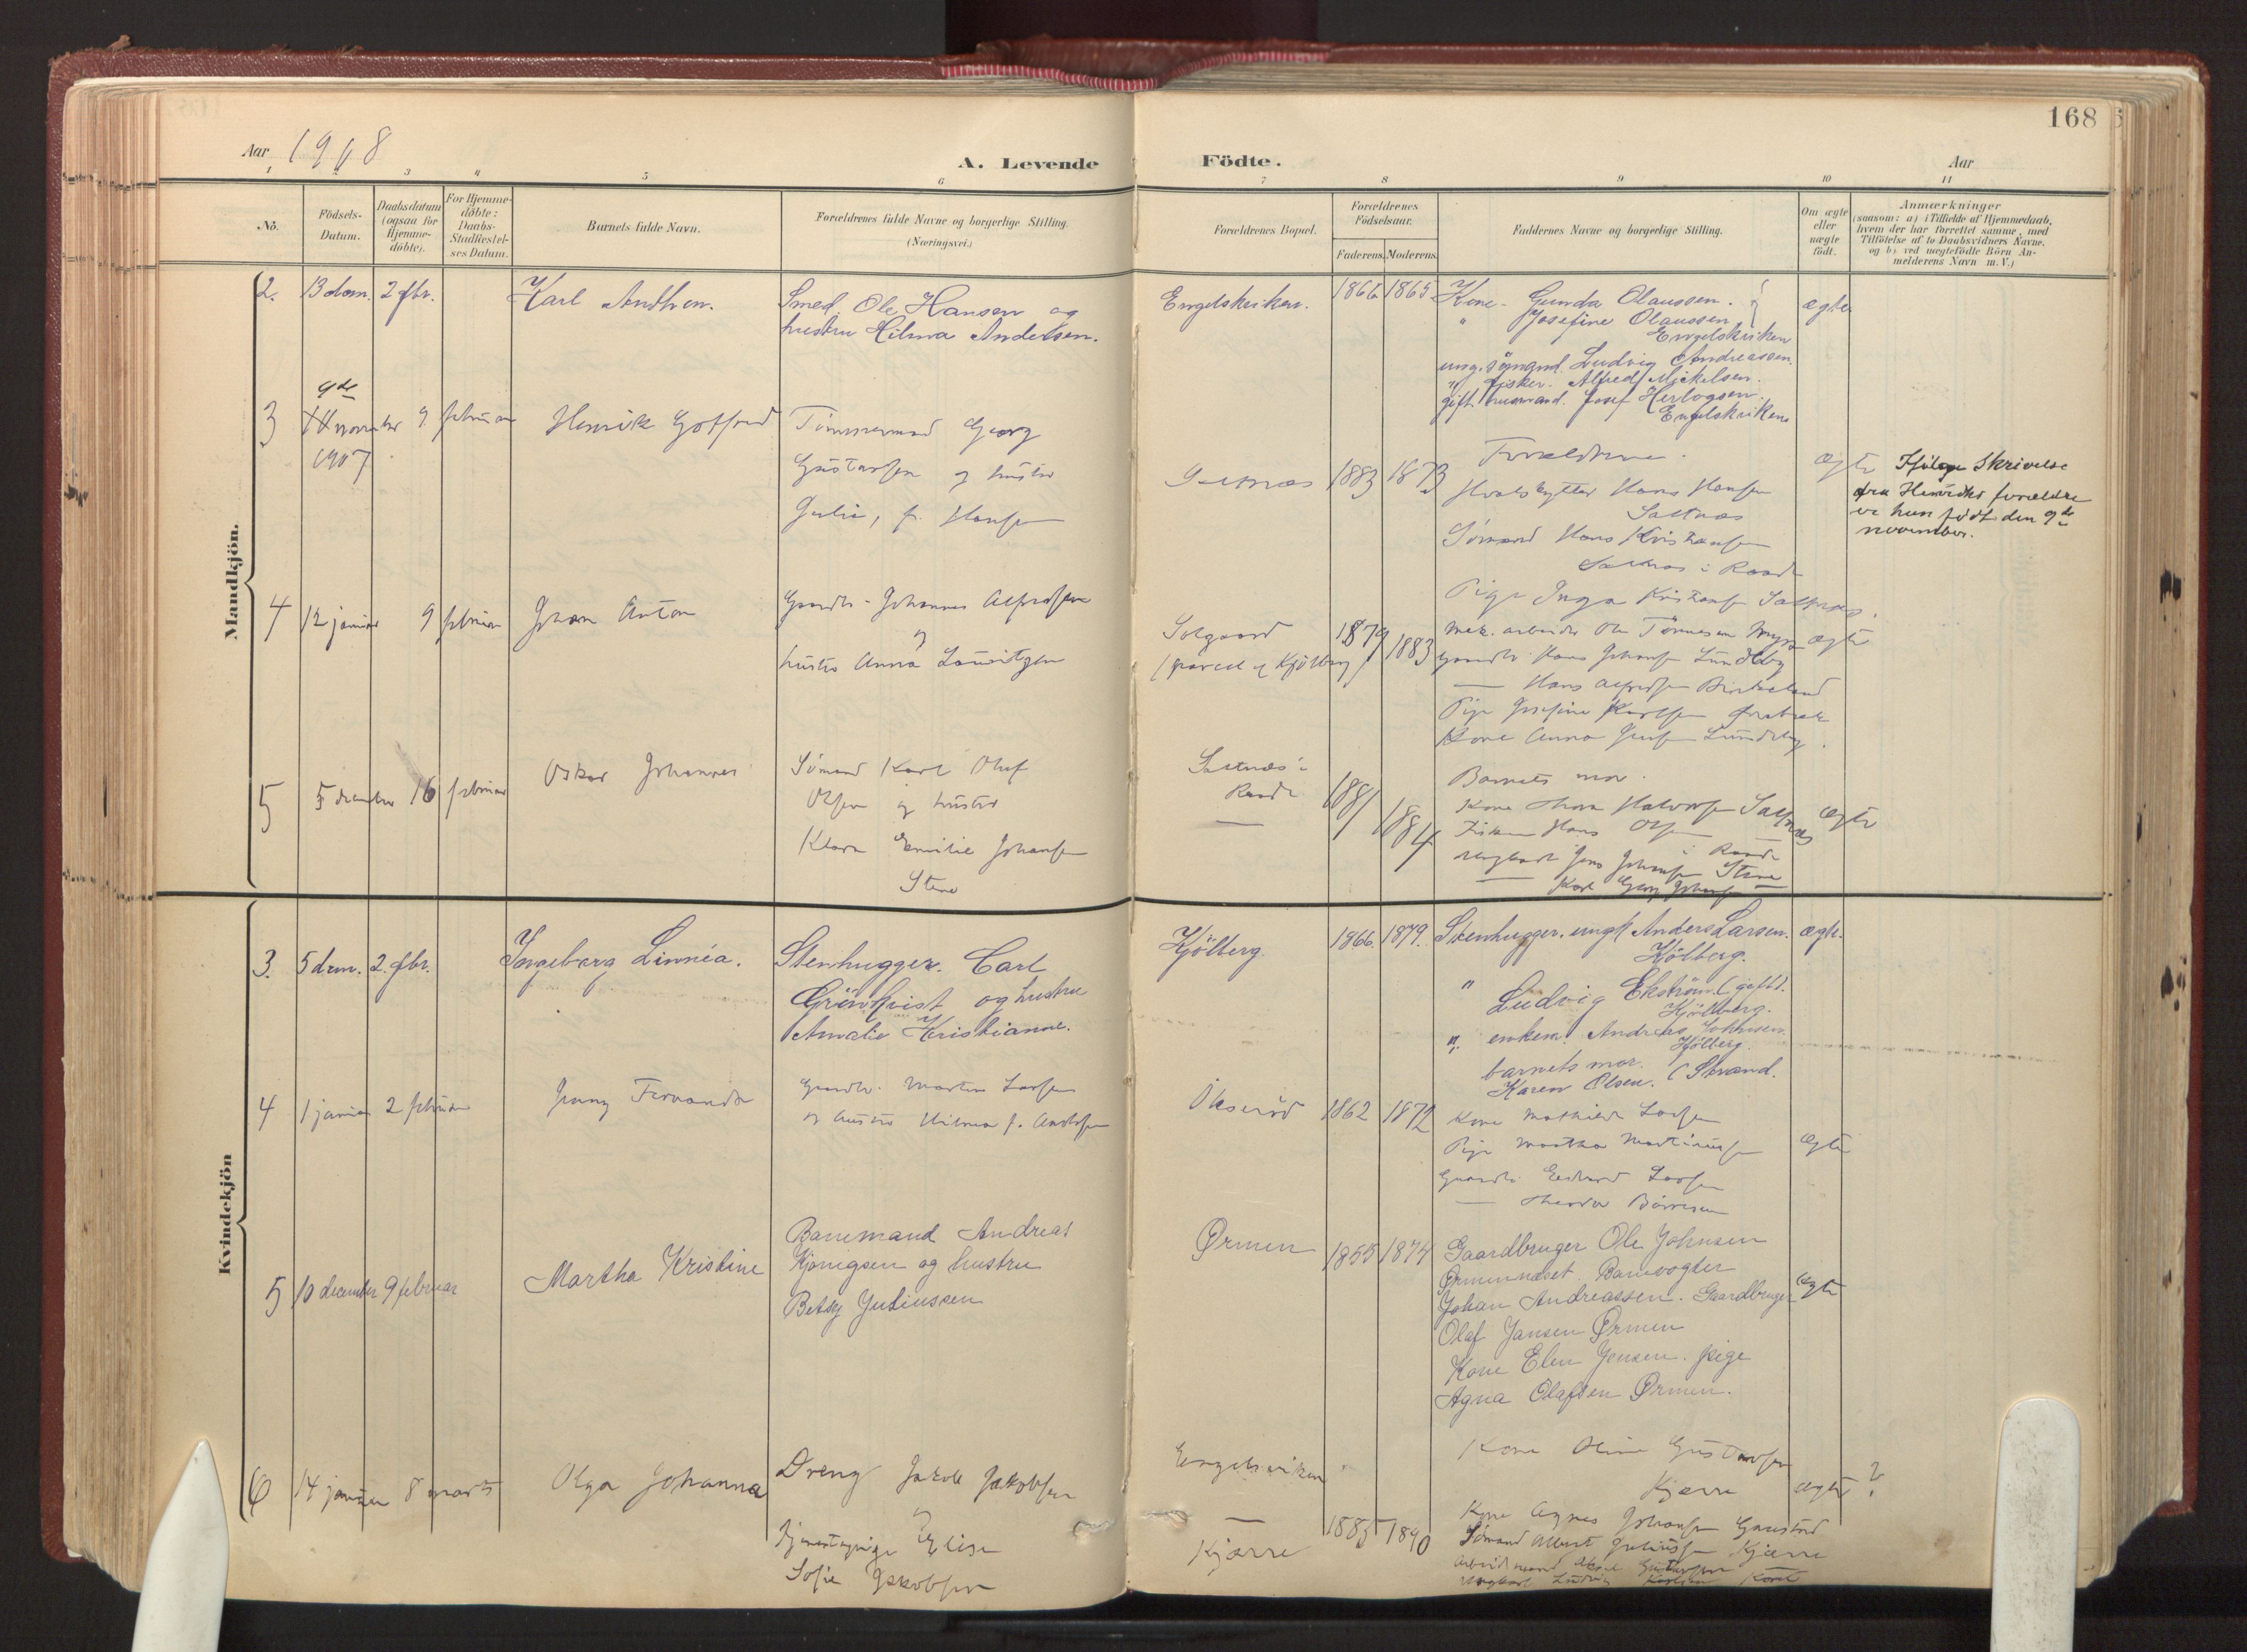 168
Aar 1908
A. Levende Födte.
Aar
1 2 3 4 5 6 7 8 9 10 11
No.
Födsels-
Datum.
Daabsdatum
(ogsaa for
Hjemme-
döbte).
For Hjemme-
döbte:
Daabs-
Stadfæstel-
ses Datum.
Barnets fulde Navn.
Forældrenes fulde Navne og borgerlige Stilling.
(Næringsvei.)
Forældrenes Bopæl.
Forældrenes
Födselsaar.
Faderens. Moderens.
Faddernes Navne og borgerlige Stilling.
Om ægte
eller
uægte
födt.
Anmærkninger
(saasom: a) i Tilfælde af Hjemmedaab,
hvem der har forrettet samme, med
Tilföielse af to Daabsvidners Navne.
og b) ved uægtefödte Börn An-
melderens Navn m. V.)
Mandkjön.
2. 13 dem. 2 fbr.
Karl Andhen.
Smed. Ole Hansen og
hustru Hilma Andersen.
Engelsviken.
1866 1865
Kone - Gunda Olaussen.
" Josefine Olaussen
Engelsviken
ung. sömand. Ludvig Andreassen.
" fisker. Alfred Mickelsen.
gift. husmand. Josef Herlogsen.
Engelsviken
ægte
3
9de
november
1907
9 februar
Henrik Gotfred
Tømmermand Georg
Gustavsen og hustru
Julie, f. Hansen
1883 1873
Forældrene.
Hvalskytter Hans Hansen
Saltnæs
Sømand Hans Kristiansen
Saltnæs i Raade
Pige Inga Kristiansen Saltnæs.
ægte
Ifölge Skrivelse
fra Henriks forældre
er han födt den 9de
november.
4 12 januar 9 februar
Johan Anton
Gaardbr. Johannes Alfredsen
og
hustru Anna Lauritzen
Solgaard
(parcel af Kjölberg)
1879 1883
Mek. arbeider Ole Tønnesen
Gaardbr. Hans Johansen Lundeby
— Hans Alfredsen
Pige Josefine Karlsen
Kone Anna Jensen Lundeby.
ægte
5 5 december 16 februar
Oskar Johannes
Sömand Karl Oluf
Olsen og hustru
Klara Emilie Johansen
Stene
Saltnæs i
Raade
—
1881 1884
Barnets mor.
Kone Thora Halvorsen Saltnæs
Fisker Hans Olsen
i Raade
Ungkarl Jens Johansen Stene
— Karl Georg Johansen —
ægte
Kvindekjön
3. 5 dem. 2. fbr.
Ingeborg Linnéa.
Stenhugger. Carl
Grünkvist og hustru
Amalie Kristianne.
Kjölberg.
1866. 1879.
Stenhugger. ungk Anders Larsen.
Kjölberg.
" Ludvig Ekström. (gift).
Kjölberg.
" enkem. Andreas Johnsen
Kjölberg.
barnets mor.
Karen Olsen. (Strand.
ægte.
4 1 januar 2 februar
Jenny Fernanda
Gaardbr. Martin Larsen
og hustru Hilma f. Andersen
1862 1872
Kone Mathilde Larsen
Pige Martha Martinusen
Gaardbr. Edvard Larsen
— Theodor Børresen
ægte
5 10 december 9 februar
Martha Kristine
Banemand Andreas
og hustru
Betsy Juliussen
Ørmen
1855 1874
Gaardbruger Ole Johnsen
Ørmennæset. Banevogter
Johan Andreassen. Gaardbruger
Olaf Jansen Ørmen
Kone Elen Jensen. pige
Agna Olafsen Ørmen.
ægte
6 14 januar 8 marts
Olga Johanna
Dreng Jakob Jakobsen
og
tjenestepige Elise
Sofie Jakobsen
Engelsviken
—
Kjærre
1885 1890
Kone Oline Gustavsen
Kjærre
Kone Agnes Johansen
Sömand Albert Juliussen Kjærre
Arbeidsmand Aksel Gustavsen —
Ungkarl Ludvig Karlsen
ægte ?